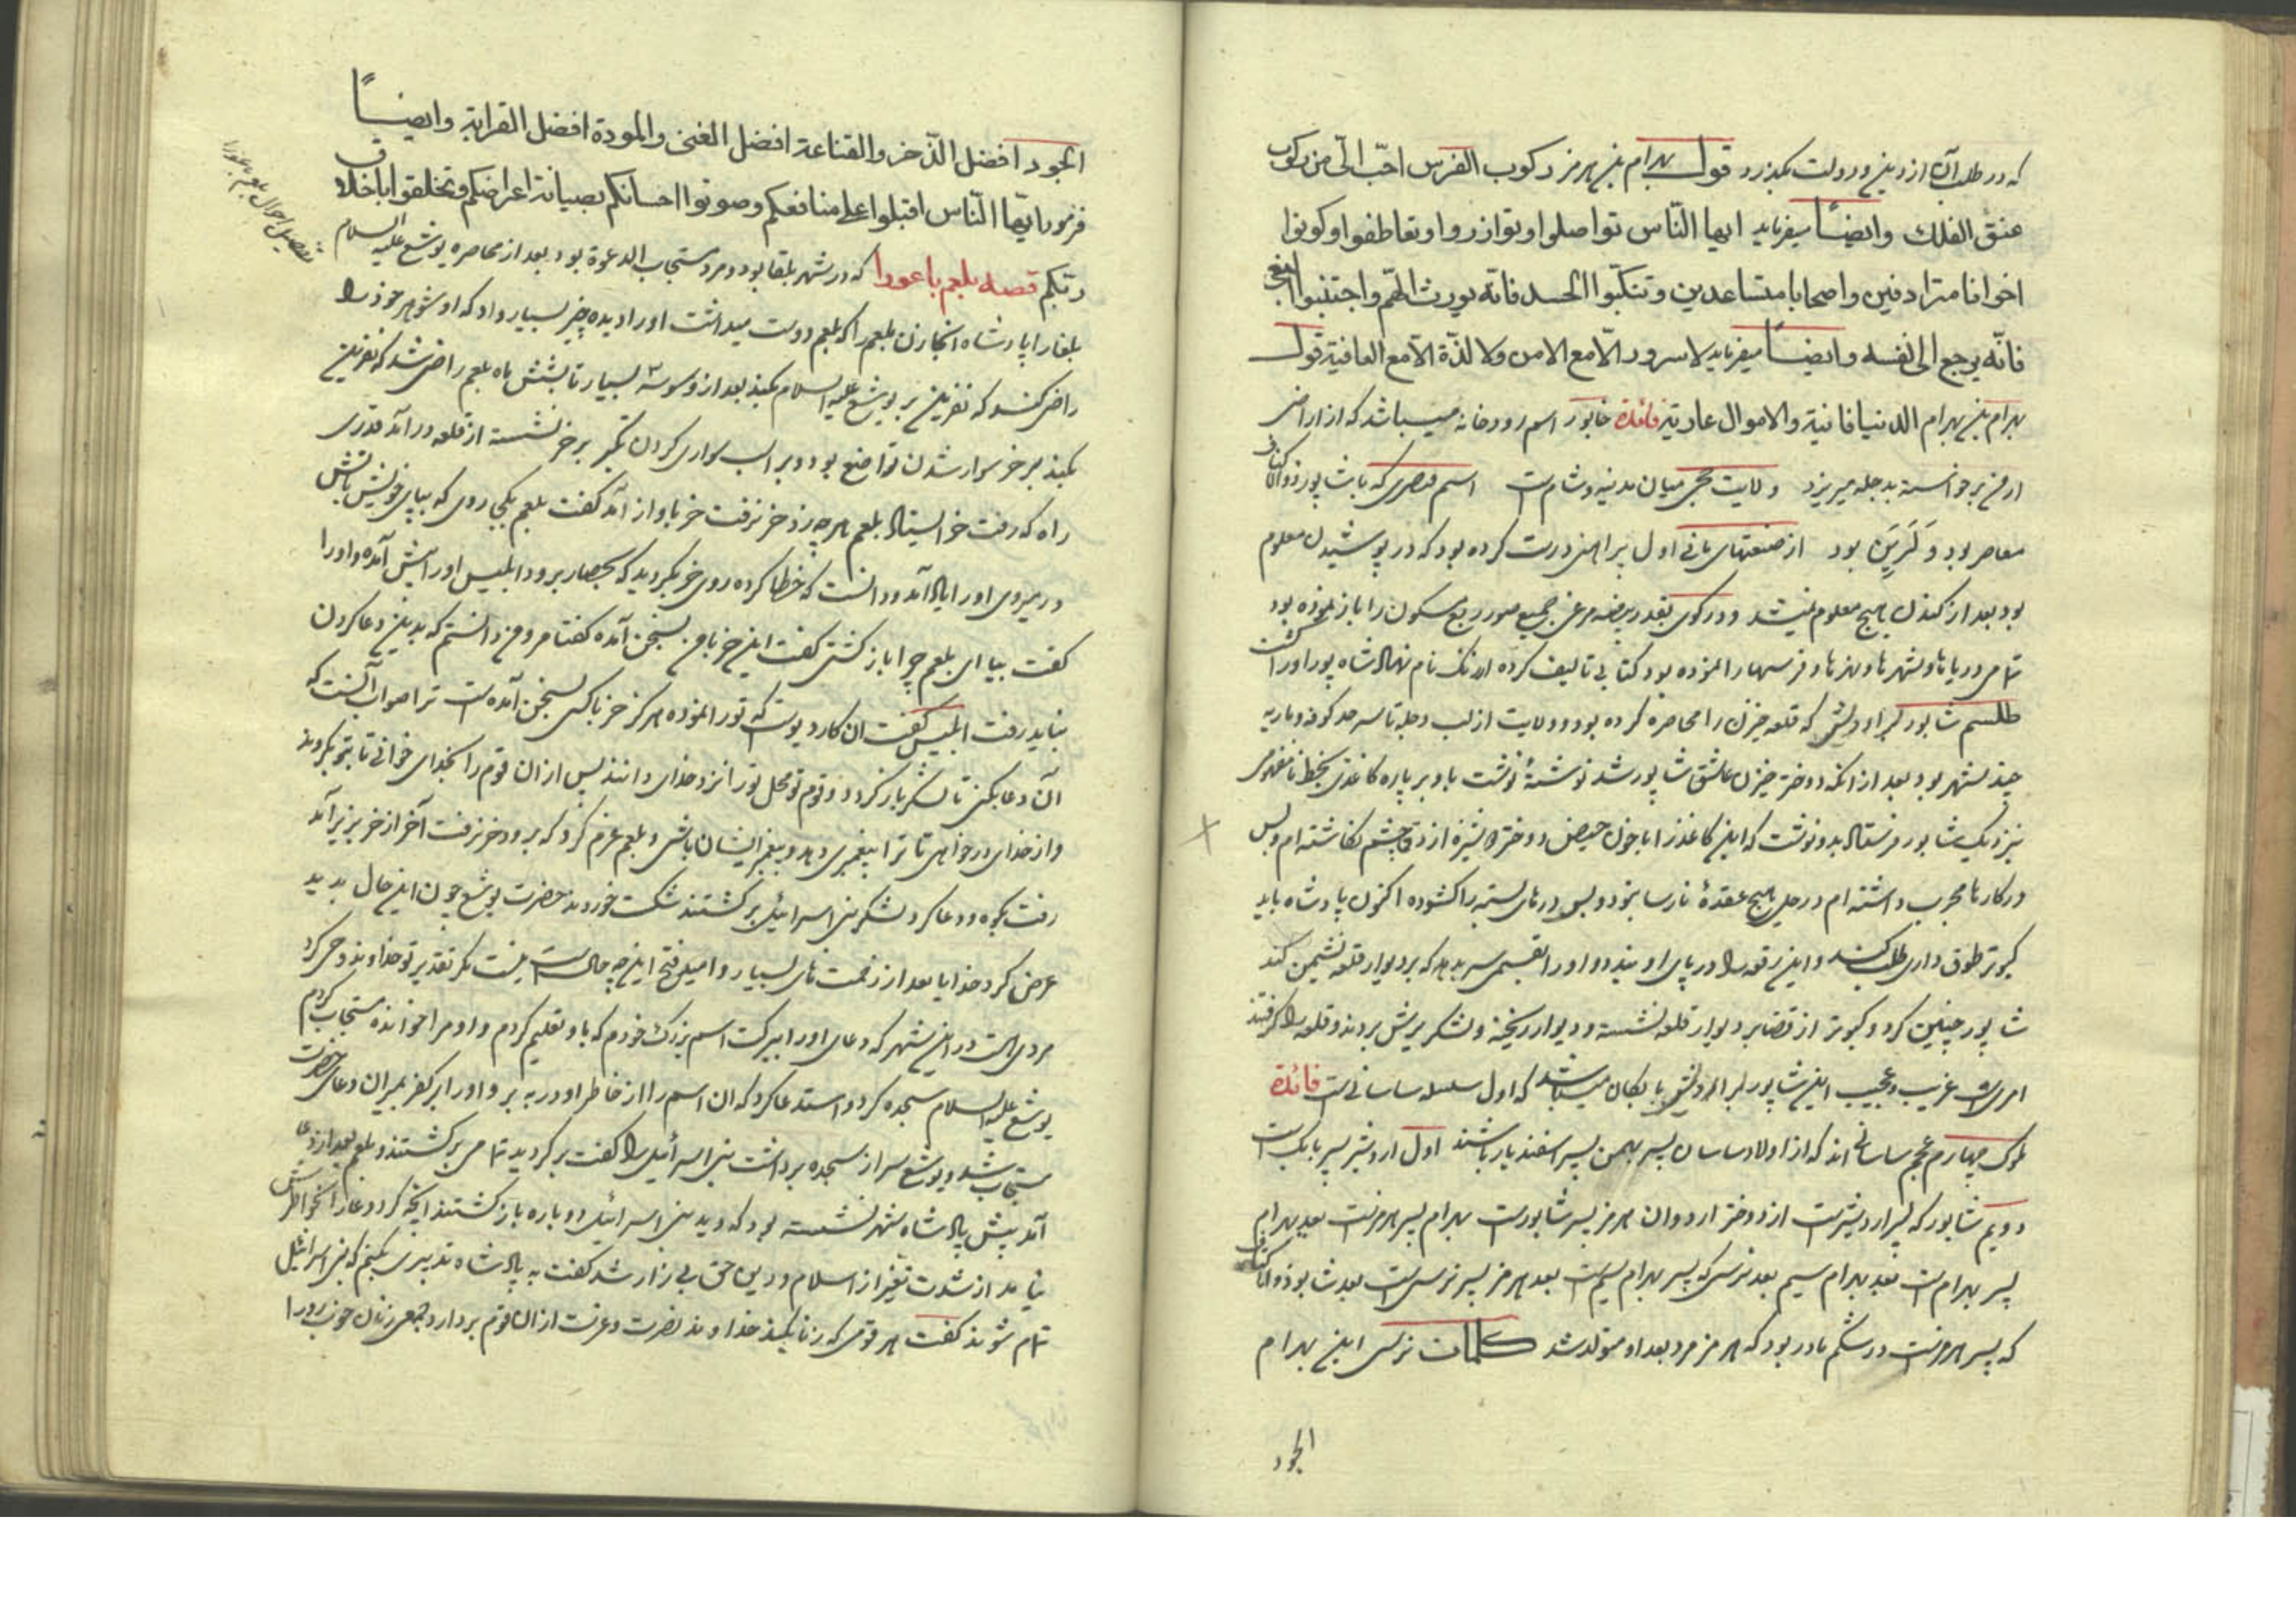 که در طلب آن از دین و دولت بگذرد قول بهرام بن هرمز رکوب الفرس احبّ الیّ من رکوب
عنق الفلك وایضاً میفرماید ایها النّاس تواصلوا وتوازروا وتعاطفوا وکونوا
اخوانا مترادفین واصحابا متساعدین وتنکّبوا الحسد فانّه یورث الهمّ واجتنبوا البغی
فانّه یرجع الی نفسه وایضاً میفرماید لا سرور الّا مع الامن ولا لذّة الّا مع العافیة قول
بهرام بن بهرام الدنیا فانیة والاموال عاریة فائدة خابور اسم رودخانه میباشد که از اراضی
ارمن برخواسته بدجله میریزد ولایت حجر میان مدینه و شام است اسم قیصری که با شاپور ذوالاکتاف
معاصر بود بود از صنعتهای مانی اول پیراهنی درست کرده بود که در پوشیدن معلوم
بود بعد از کندن هیچ معلوم نمیشد و در گوی بقدر بیضه مرغی جمیع صور ربع مسکون را باز نموده بود
تمامی دریاها و شهرها و نهرها و فرسها را نموده بود کتابی تالیف کرده ارتنک نام نهاد شاه پور اورا کشت
طلسم شاپور بن اردشیر که قلعه خیزن را محاصره کرده بود و ولایت از لب دجله تا سرحد کوفه و باریه
چند شهر بود بعد از آنکه دختر خیزن عاشق شاپور شد نوشتهٔ نوشت باو بر پاره کاغذی بخط نامفهومی
بنزدیک شاپور فرستاد بدو نوشت که این کاغذ را با خون حیض دختر دوشیزه ازرق چشم نکاشته ام و بس
در کارها مجرب داشته ام در حلی هیچ عقدهٔ نارسا نبود و بس درهای بسته را کشوده اکنون پادشاه باید
کبوتر طوق داری طلب کند و این رقعه را در پای او بندد و اورا بقسمی سر بدهد که بر دیوار قلعه نشیمن کند
شاپور چنین کرد و کبوتر از قضا بر دیوار قلعه نشسته و دیوار ریخته و لشکر یورش بردند و قلعه را گرفتند
امری است غریب و عجیب این شاپور بن اردشیر بابکان میباشد که اول سلسله ساسانی است فائدة
ملوک چهارم عجم ساسانی اند که از اولاد ساسان پسر بهمن پسر اسفندیار باشند اول اردشیر پسر بابک است
دویم شاپور که پسر اردشیر است از دختر اردوان هرمز پسر شاپور است بهرام پسر هرمز است بعد بهرام
پسر بهرام است بعد بهرام سیم بعد نرسی که پسر بهرام سیم است بعد هرمز پسر نرسی است بعد شاپور ذوالاکتاف
که پسر هرمز است در شکم مادر بود که هرمز مرد بعد او متولد شد کلمات نرسی ابن بهرام
الجود
الجود افضل الذّخر والقناعة افضل الغنی والمودة افضل القرابة وایضاً
فرمود ایّها النّاس اقبلوا علی منافعکم وصونوا احسانکم بصیانة اعراضکم وتخلقوا باخلاق
ربّکم قصه بلعم باعورا که در شهر بلقا بود و مرد مستجاب الدعوة بود بعد از محاصره یوشع علیه السلام
بلقا را پادشاه آنجا زن بلعم را که بلعم دوست میداشت اورا دیده چیز بسیار داد که او شوهر خود را
راضی کند که نفرین بر یوشع علیه السلام بکند بعد از وسوسهٔ بسیار تا بشش ماه بلعم راضی شد که نفرین
بکند بر خر سوار شدن تواضع بود و بر اسب سواری کردن تکبر بر خر نشسته از قلعه در آمد قدری
راه که رفت خر ایستاد بلعم هرچه زد خر نرفت خر باواز آمد گفت بلعم بکجا روی که بپای خویش باتش
درمیروی اورا یاد آمد و دانست که خطا کرده روی خر بکردید که بحصار برود ابلیس اورا پیش آمد و اورا
گفت بیا ای بلعم چرا باز گشتی گفت این خر با من بسخن آمده گفتا مرو من دانستم که بدین دعا کردن
نباید رفت ابلیس گفت آن کار دیو است که تورا نموده هرگز خر با کسی بسخن آمده است ترا صواب آنست که
آن دعا بکنی تا لشکر باز گردد و قوم تو محل تورا نزد خدای دانند پس از آن قوم را بخدای خوانی تا بتو بگروند
و از خدای درخواهی تا ترا پیغمبری دهد و پیغمبر ایشان باشی و بلعم عزم کرد که برود خر نرفت آخر از خر بزیر آمد
رفت بکوه و دعا کرد لشکر بنی اسرائیل برگشتند شکست خوردند حضرت یوشع چون این حال بدید
عرض کرد خدایا بعد از زحمت های بسیار و امید فتح این چه حالست نیست مگر تقدیر تو خداوند وحی کرد
مردی است در این شهر که دعای اورا ببرکت اسم بزرگ خودم که باو تعلیم کردم و او مرا خوانده مستجاب کردم
یوشع علیه السلام سجده کرد و استدعا کرد که آن اسم را از خاطر او در به بر و اورا بر کفر بمیران دعای حضرت
مستجاب شد و یوشع سر از سجده برداشت بنی اسرائیل را گفت برگردید تمامی برگشتند و بلعم بعد از دعا
آمد پیش پادشاه شهر نشسته بود که دید بنی اسرائیل دوباره باز گشتند آنچه کرد دعا را بخاطرش
نیامد از شدت تغیر از اسلام و دین حق بی زار شد گفت به پادشاه تدبیری بکنم که بنی اسرائیل
تمام شوند گفت هر قومی که زنا بکنند خداوند نصرت و عزت از آن قوم بردارد جمعی زنان خوب رو را
تفصیل احوال بلعم باعورا